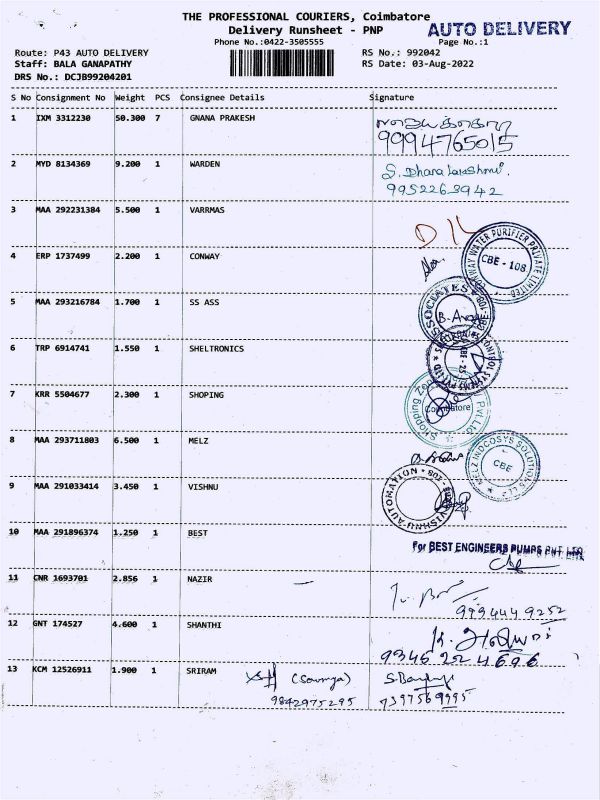 THE PROFESSIONAL COURIERS, Coimbatore
Delivery Runsheet - PNP
AUTO DELIVERY
Phone No.:0422-3505555
Page No.:1
Route: P43 AUTO DELIVERY
RS No.: 992042
Staff: BALA GANAPATHY
RS Date: 03-Aug-2022
DRS No.: DCJB99204201
S No Consignment No Weight PCS Consignee Details Signature
1 IXM 3312230 50.300 7 GNANA PRAKESH
99994765015
2 MYD 8134369 9.200 1 WARDEN S. Dhanalakshmi.
9952263942
3 MAA 292231384 5.500 1 VARRMAS
4 ERP 1737499 2.200 1 CONWAY
CONWAY WATER PURIFIER PRIVATE LIMITED
CBE - 108
5 MAA 293216784 1.700 1 SS ASS
6 TRP 6914741 1.550 1 SHELTRONICS
7 KRR 5504677 2.300 1 SHOPING
Shopping Zone Pvt Ltd
Coimbatore
8 MAA 293711803 6.500 1 MELZ
MELZ INDCOSYS SOLUTIONS LLP
CBE
9 MAA 291033414 3.450 1 VISHNU
VISHNU AUTOMATION
10 MAA 291896374 1.250 1 BEST
For BEST ENGINEERS PUMPS PVT. LTD.
11 CNR 1693701 2.856 1 NAZIR
9994449252
12 GNT 174527 4.600 1 SHANTHI
9346224696
13 KCM 12526911 1.900 1 SRIRAM (Sowmya)
9842975295 7397569995